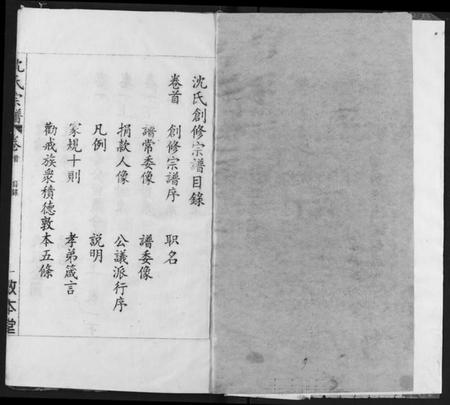 沈氏創修宗譜目錄
卷首　創修宗譜序　职名
譜常委像　譜委像
捐款人像　公議派行序
凡例　説明
家規十則　孝弟箴言
勸戒族眾積德敦本五條
沈氏宗譜　卷首　目錄　一　敦本堂